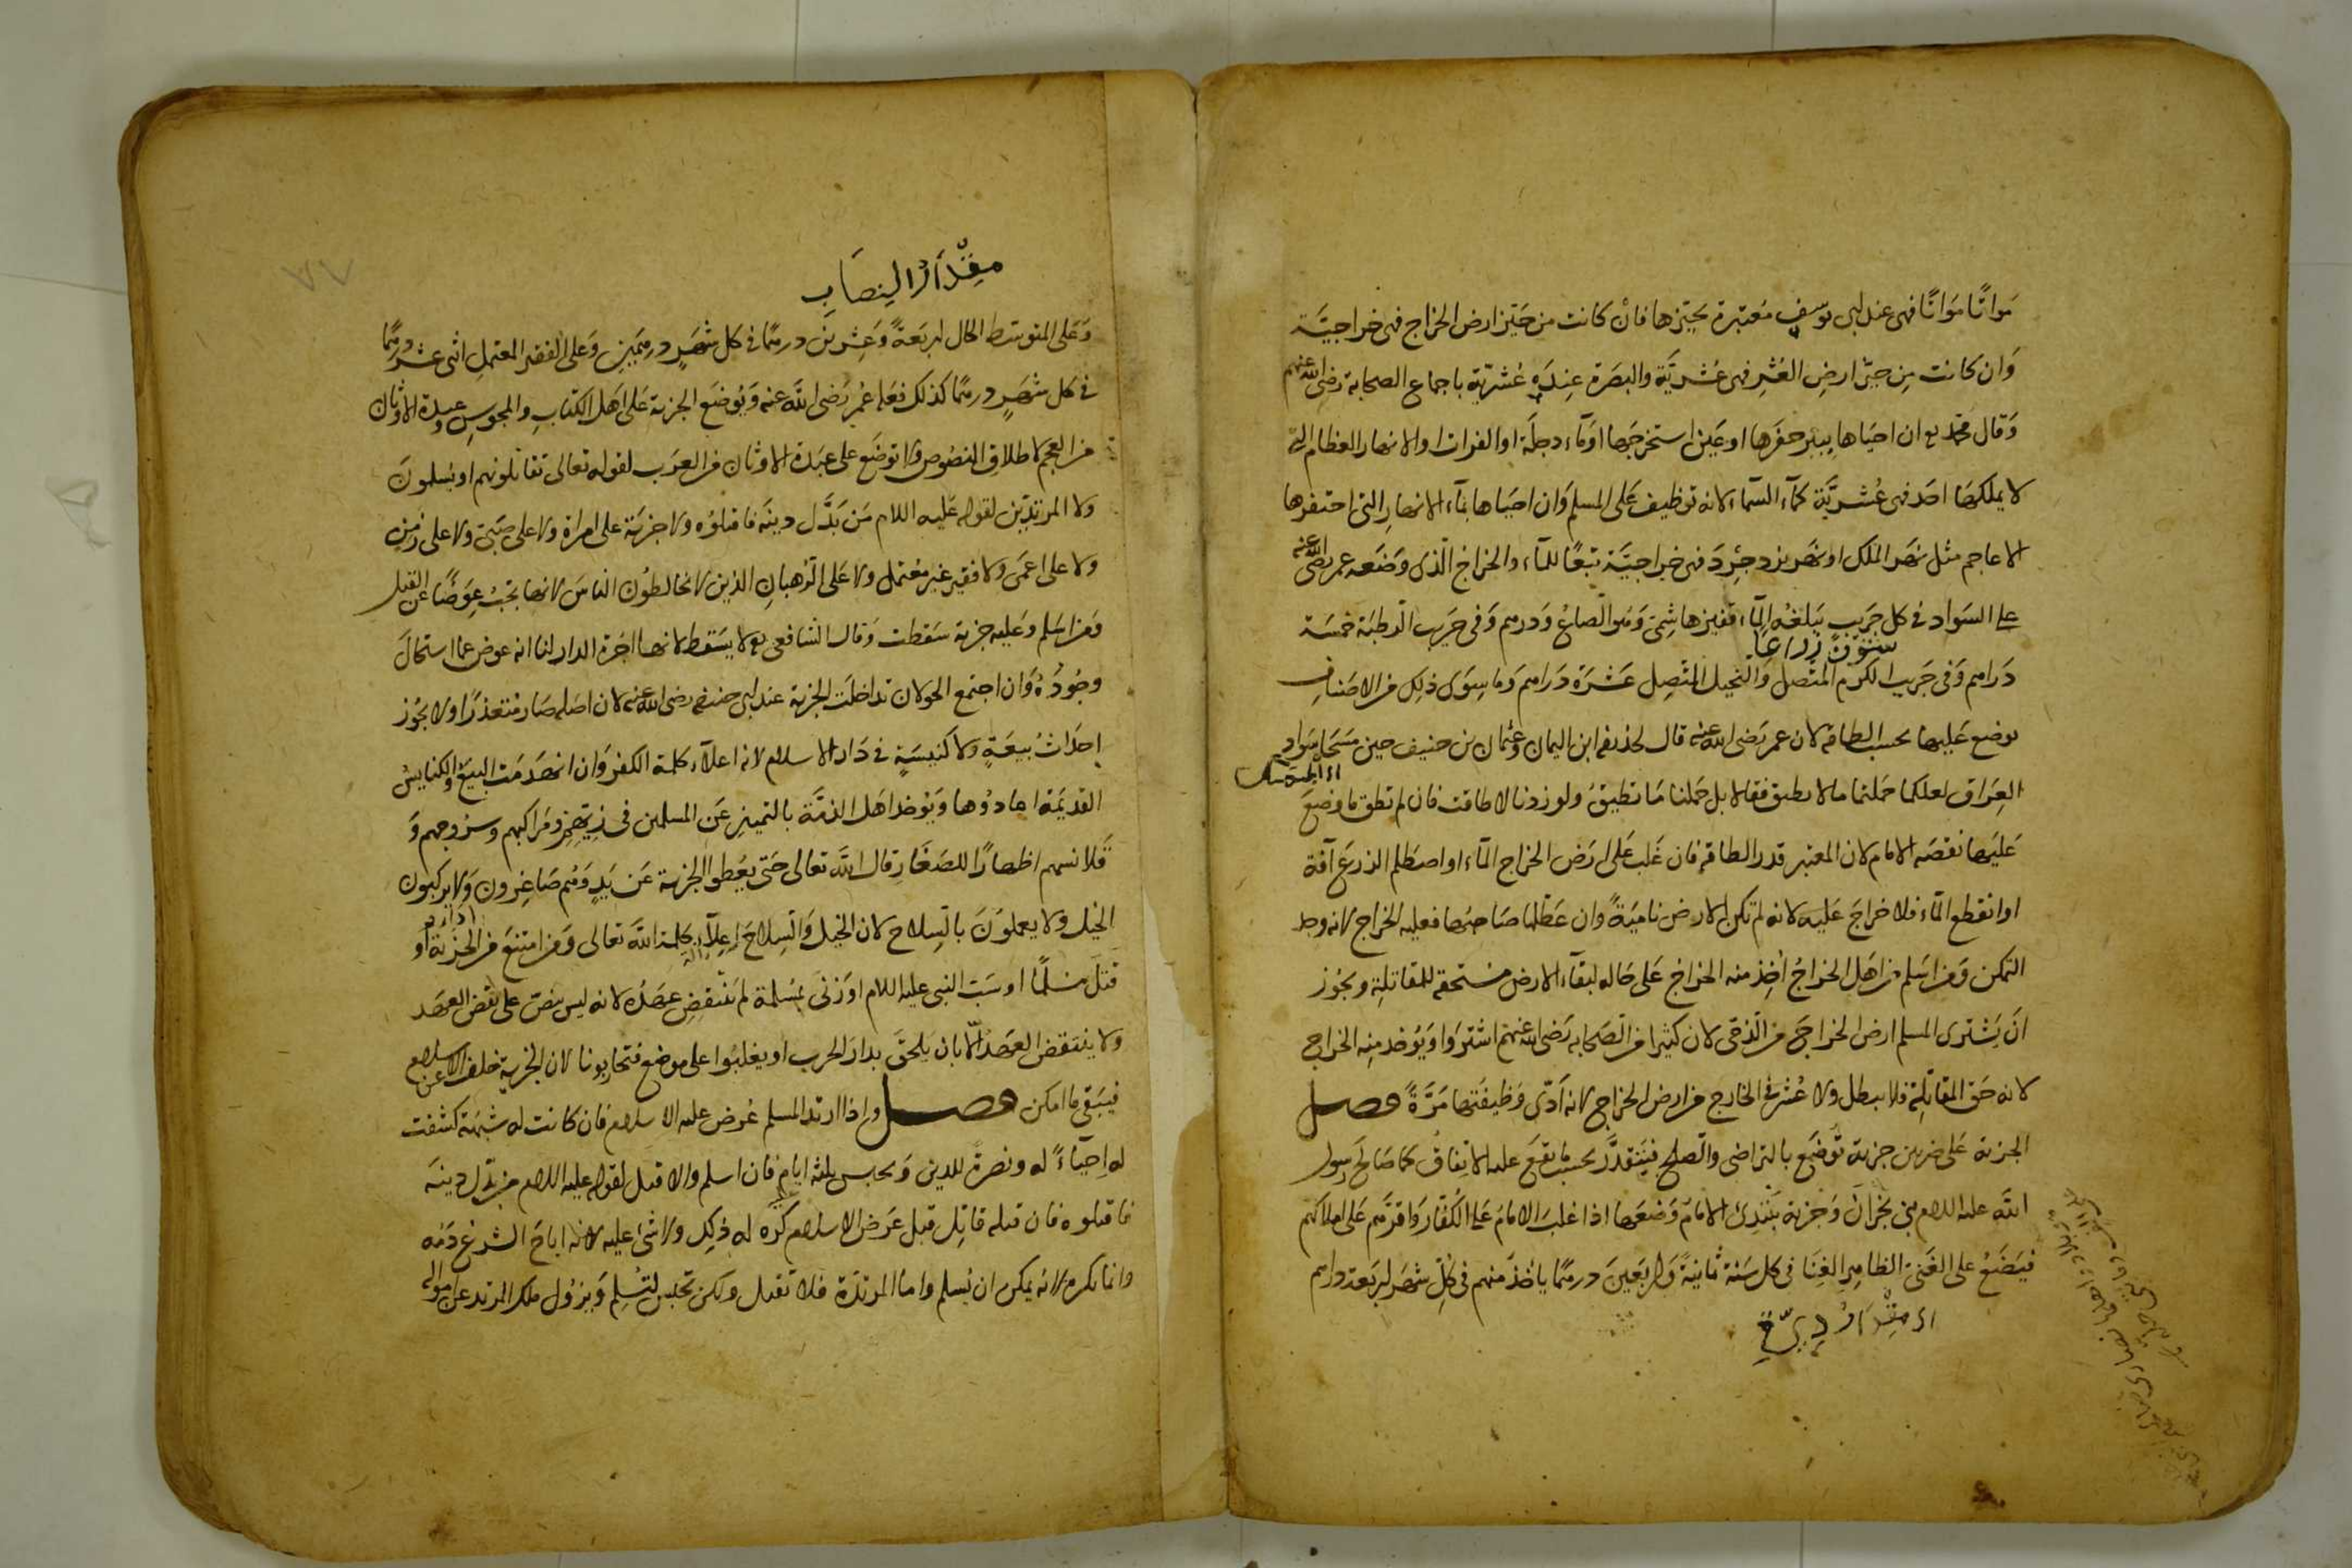 مَواتًا مَوَاتًا فهى عند ابى يوسف مُعتبرة بحيّزها فان كانت من حيّز ارض الخراج فهى خراجيّة
وَان كانت مِن حيّز ارضِ العُشرِ فهى عُشريَّة والبصَرة عِندَهٗ عُشريّة باجماع الصحابة رضى الله عنهم
وَقال محمّد رح ان احيَاها ببير حفرَها او عَين استخرجَها اوماء دجلَة او الفرات او الانهار العظام التى
لا يملكهَا احَد فهى عُشريَّة كماء السّماء لانه توظيف عَلى المسلم وَان احيَاها بماء الانهارِ التى احتفرها
الاعاجم مثل نهَر الملك او نهَر يزدجِرْد فهى خراجيَّة تبعًا للماء والخراج الّذى وَضعَه عمر رضى الله عنه
على السَواد فى كل جريب يَبلغهُ الماء قفيز هاشِمىّ وَهو الصاعُ وَدرهم وَفى جَريب الرّطبَة خمسَة
ستون ذراعا
دَراهم وَفى جَريب الكرم المتّصل وَالنخيل المتّصِل عَشرَة دَراهم وَما سِوَى ذلِك من الاصنافِ
يوضع عَليها بحسب الطاقة لان عمر رَضى الله عنه قال لحذيفه ابن اليمان وعثمان بن حنيف حين مسَحا سَواد
العِرَاق لعلكما حَملتما ما لا يطيق فقالا بل حَملنا مَا تطيقُ ولو زدنا لاطاقت فان لم تطق ما وضِعَ
عَليهَا نقصَه الامام لان المعتبر قدر الطاقة فان غَلب عَلى ارَض الخراج الماء او اصطلم الزرع آفة
او انقطع الماء فلا خراجَ عَليه لانه لم تكن الارض نامِيَةً وان عَطّلها صَاحبُها فعليه الخراج لانه وجد
التمكن وَمن اسَلم من اهَل الخراجُ اُخِذ منه الخراج عَلى حَاله لبقاء الارض مستحقه للمقاتلِة ويجُوز
انَ يَشترى المسلم ارض الخراجَ من الذّمّى لان كثيرا من الصَحابه رَضى الله عنهم اشترَوا وَيؤخذ منِه الخراج
لانه حَق المقاتلِة فلا يبطل ولا عُشر فى الخارج من ارض الخراج لانه ادّى وَظيفَتها مَرّةً فصل
الجزية عَلى ضربين جزية تُوضَع بالتراضى والصّلح فيَتقدّر بحسب مَا يقع عليه الاتفاقُ كما صَالح رسول
الله عليه السلام بنى نجرانَ وَجزية يَبتدِئ الامامُ وَضعَها اذا غلبَ الامامُ عَلى الكُفّار وَاقرّهم عَلى املاكهم
فيَضَعُ على الغَنىّ الظاهِر الغِنَا فى كل سَنة ثمانيةً وَاربَعينَ درهمًا يأخذ منهم فى كلّ شهَر اربَعة دراهم
مِقْدَارُ النِصَابِ
وَعَلى المتوسّط الحال اربَعَةً وَعِشرينَ درهمًا فى كل شهَرٍ درهمَينِ وَعَلى الفقير المعتملِ اثنى عشرَ درهمًا
فى كل شهَرٍ درهمًا كذلك فعَله عُمر رَضى الله عنه وَيُوضَع الجزية عَلى اهَل الكتابِ والمجوسِ وعبدة الاوثان
من العجم لاطلاقِ النصُوص ولا توضَع على عبَدة الاوثان من العرَب لقوله تعالى تقاتلونهم او يُسلمونَ
ولا المرتدّين لقوله عَليه السلام مَن بَدّل دينَه فاقتلوُه ولا جزيَة على امراة ولا على صَبىّ ولا على زَمِن
ولا على اعمَى وَلا فقير غير معُتمل ولا عَلى الرُهبانِ الذين لا يخالطوُن الناسَ لانها تجبُ عِوَضًا عن القتل
وَمن اسَلم وَعليه جزية سَقطت وَقال الشافعى رح لا يسَقط لانها اجرَة الدار لنا انه عوض عمّا استحالَ
وجُودُهُ وَان اجتمع الحولان تداخلَت الجزية عند ابى حنيفه رضى الله عنه لان اصَله صَار متعذرًا ولا يجُوز
اِحدَاثُ بيعَةٍ ولا كنيسَةٍ فى دَار الاسلام لانه اعلاء كلمة الكفر وَان انهَدمَت البيَعُ والكنايسُ
القديمَة اعادُوها وَيؤخذ اهَل الذمّة بالتميز عَن المسلمين فى زِيّهم ومَراكبهم وسُروجهم وَ
قَلانسهم اظهارًا للصَغَار قال الله تعالى حَتى يُعطوا الجزية عَن يَدٍ وَهُم صَاغِرون وَلا يركبون
الخيل ولا يعملوُنَ بالسِلاح لان الخيل وَالسِلاحَ اِعلاءُ كلمة الله تعالى وَمن امتنعَ من الجزيَة او
قتلَ مُسلمًا او سَبّ النبى عليه السلام او زنىَ بمُسلمة لم يَنْقضِ عهَدُه لانه ليس بنصّ على نقض العهَد
ولا ينتقض العهَدُ الّا بان يَلحقَ بدار الحرب او يغلبُوا على موضع فتحاربونا لان الجزية خلف عن الاسلام
فيَبقى ما امكن فصل واِذا ارتدّ المسلم عُرض عليه الاسلام فان كانت له شبهَة كشفت
له اِحيَاءً له ونصرةً للدين وَيحبس ثلثه ايام فان اسلم والا قتل لقوله عليه السلام من بدّل دينَه
فاقتلوه فان قتله قاتِل قبل عَرض الاسلام كُره له ذلِك ولا شئ عليه لانه اباحَ الشرعُ دَمه
وانما يكره لانه يمكن ان يُسلم وامّا المرتدّة فلا تقتل ولكن تحبس لتُسِلم وَيزوُل ملك المرتد عن امواله